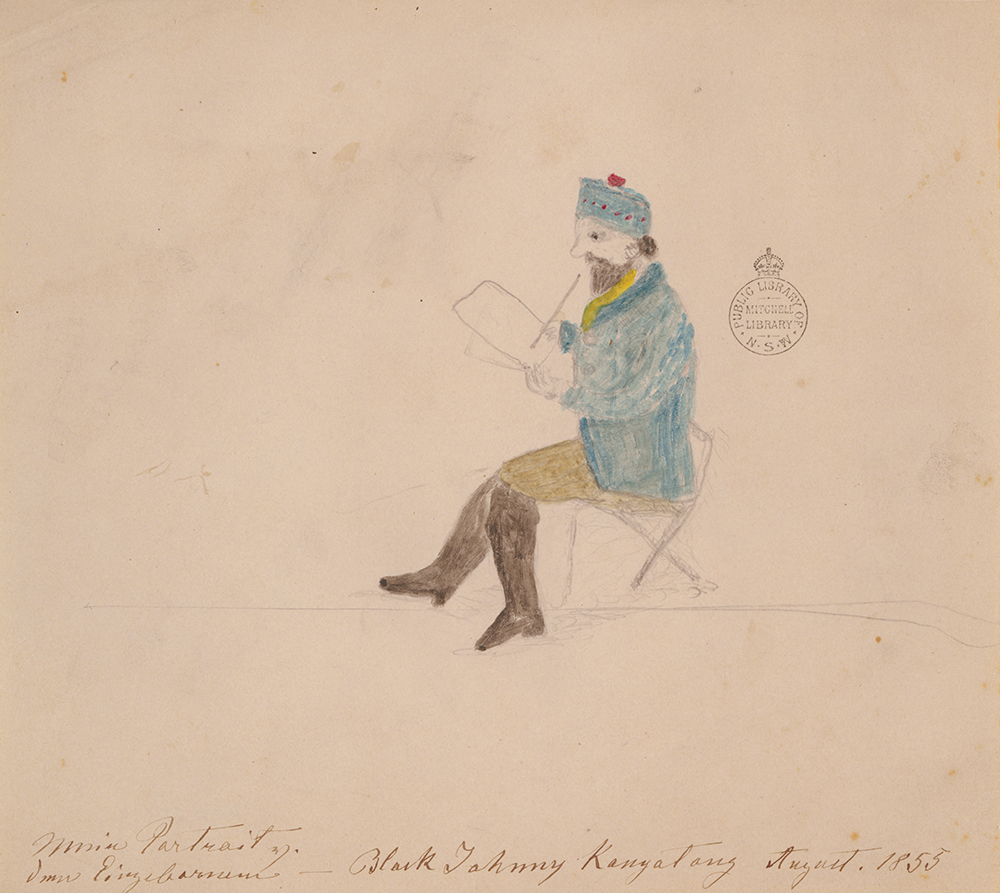 PUBLIC LIBRARY OF
MITCHELL
LIBRARY
N.S.W
Mein Portrait v.
dem Eingebornenen — Black Johnny Kangatong August. 1855